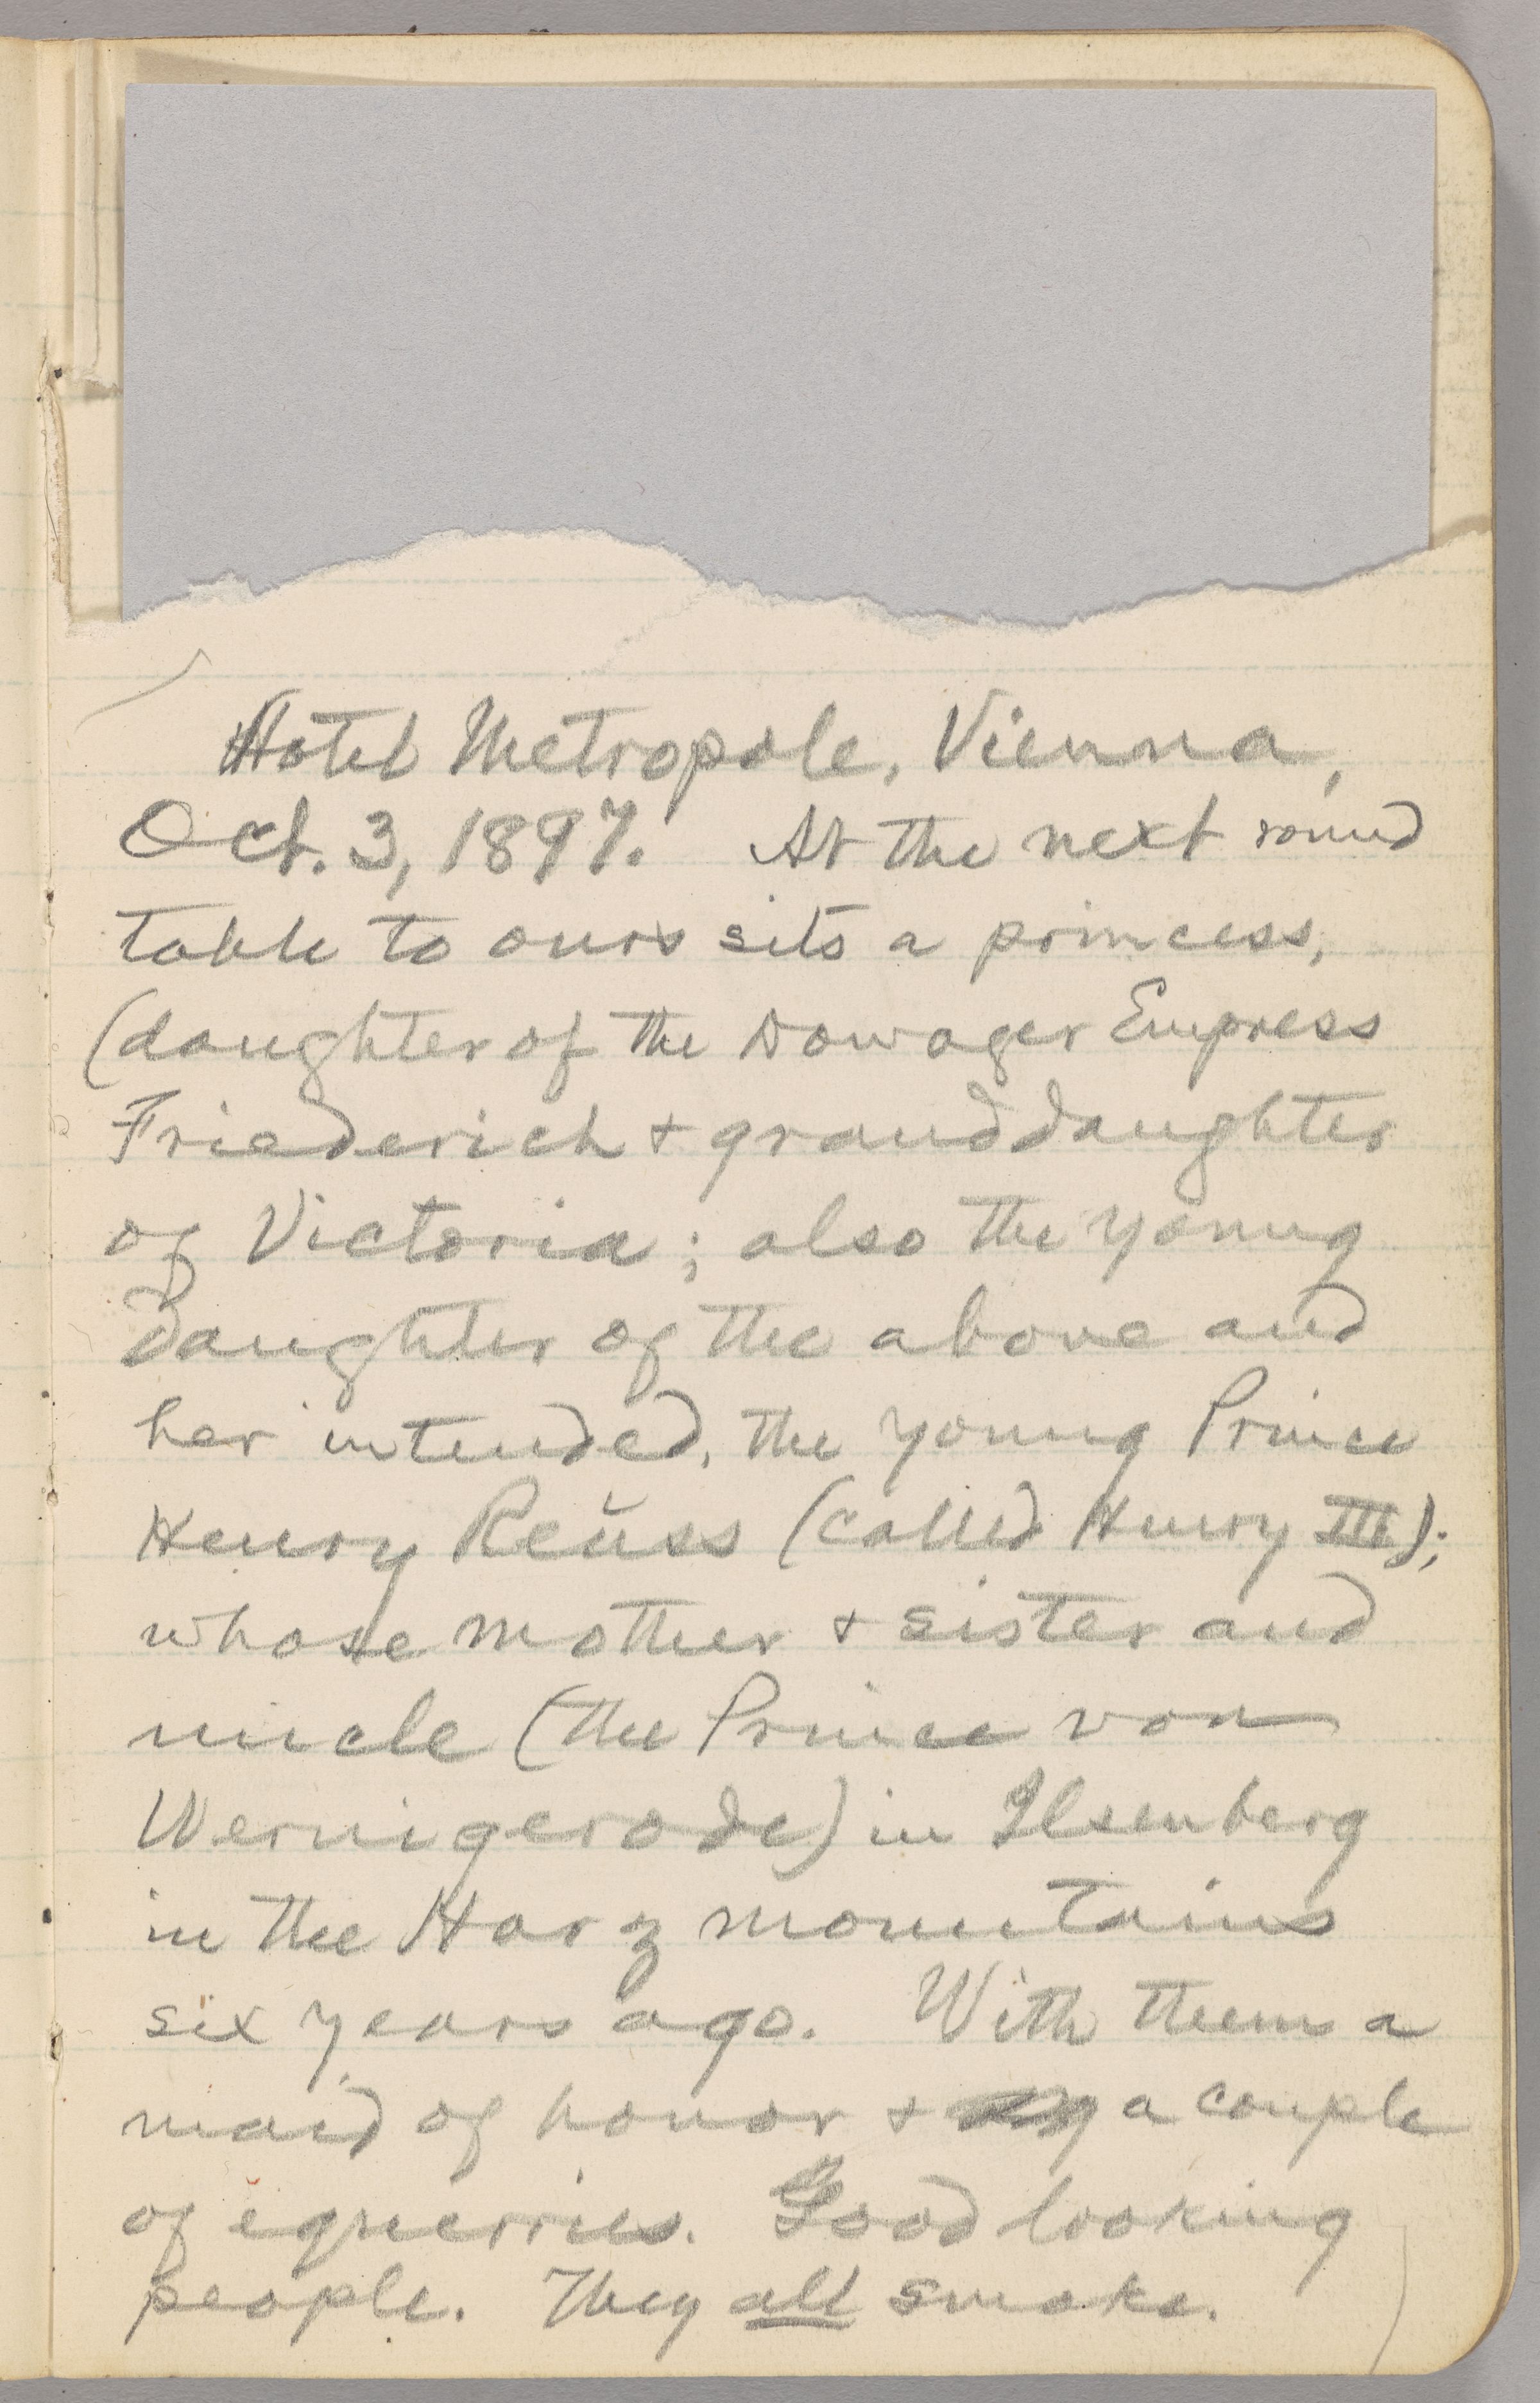 Hotel Metropole, Vienna,
Oct. 3, 1897. At the next round
table to ours sits a princess,
(daughter of the Dowager Empress
Friederich + granddaughter
of Victoria; also the young
daughter of the above and
her intended, the young Prince
Henry Reüss (called Henry III);
whose mother + sister and
uncle (the Prince von
Wernigerode) in Ilsenberg
in the Harz mountains
six years ago. With them a
maid of honor + a couple
of equerries. Good looking
people. They all smoke.